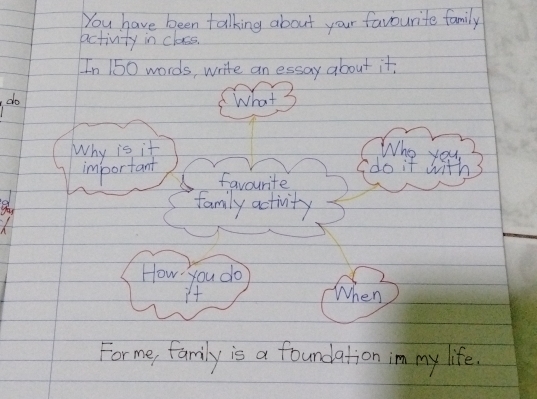 You have been talking about your favourite family
activity in class.
In 150 words, write an essay about it.
do
What
Why is it
important
Who you
do it with
favourite
family activity
How you do
it
When
For me, family is a foundation in my life.